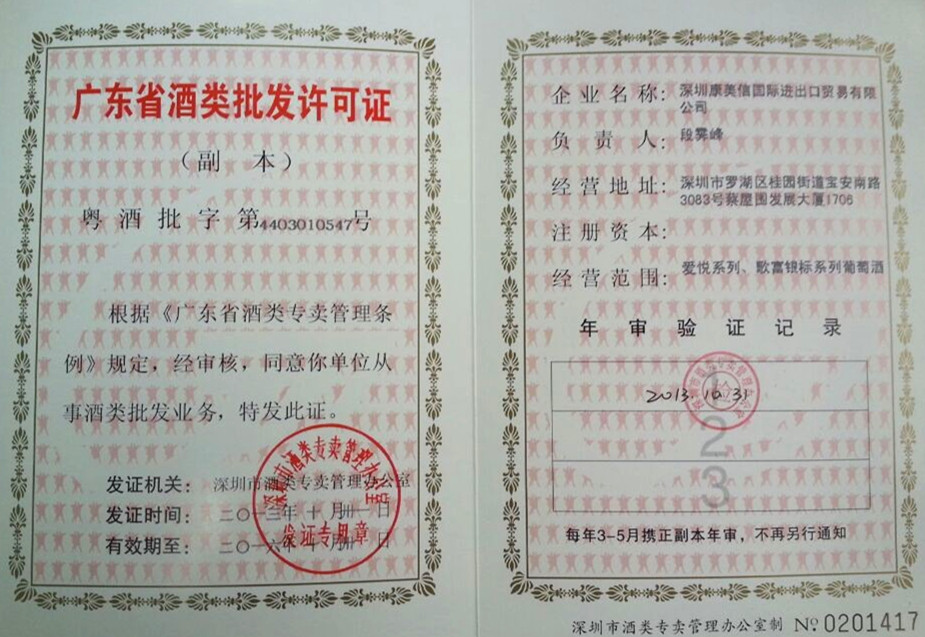 广东省酒类批发许可证
（副 本）
粤酒批字第4403010547号
根据《广东省酒类专卖管理条
例》规定，经审核，同意你单位从
事酒类批发业务，特发此证。
发证机关： 深圳市酒类专卖管理办公室
发证时间：二〇一三年十月卅一日
有效期至：二〇一六年十月卅一日
深圳市酒类专卖管理办公室
发证专用章
企业名称: 深圳康美信国际进出口贸易有限
公司
负责人: 段霁峰
经营地址: 深圳市罗湖区桂园街道宝安南路
3083号蔡屋围发展大厦1706
注册资本:
经营范围: 爱悦系列、歌富银标系列葡萄酒
年审验证记录
2013.10.31
1
2
3
每年3-5月携正副本年审，不再另行通知
深圳市酒类专卖管理办公室制 №0201417